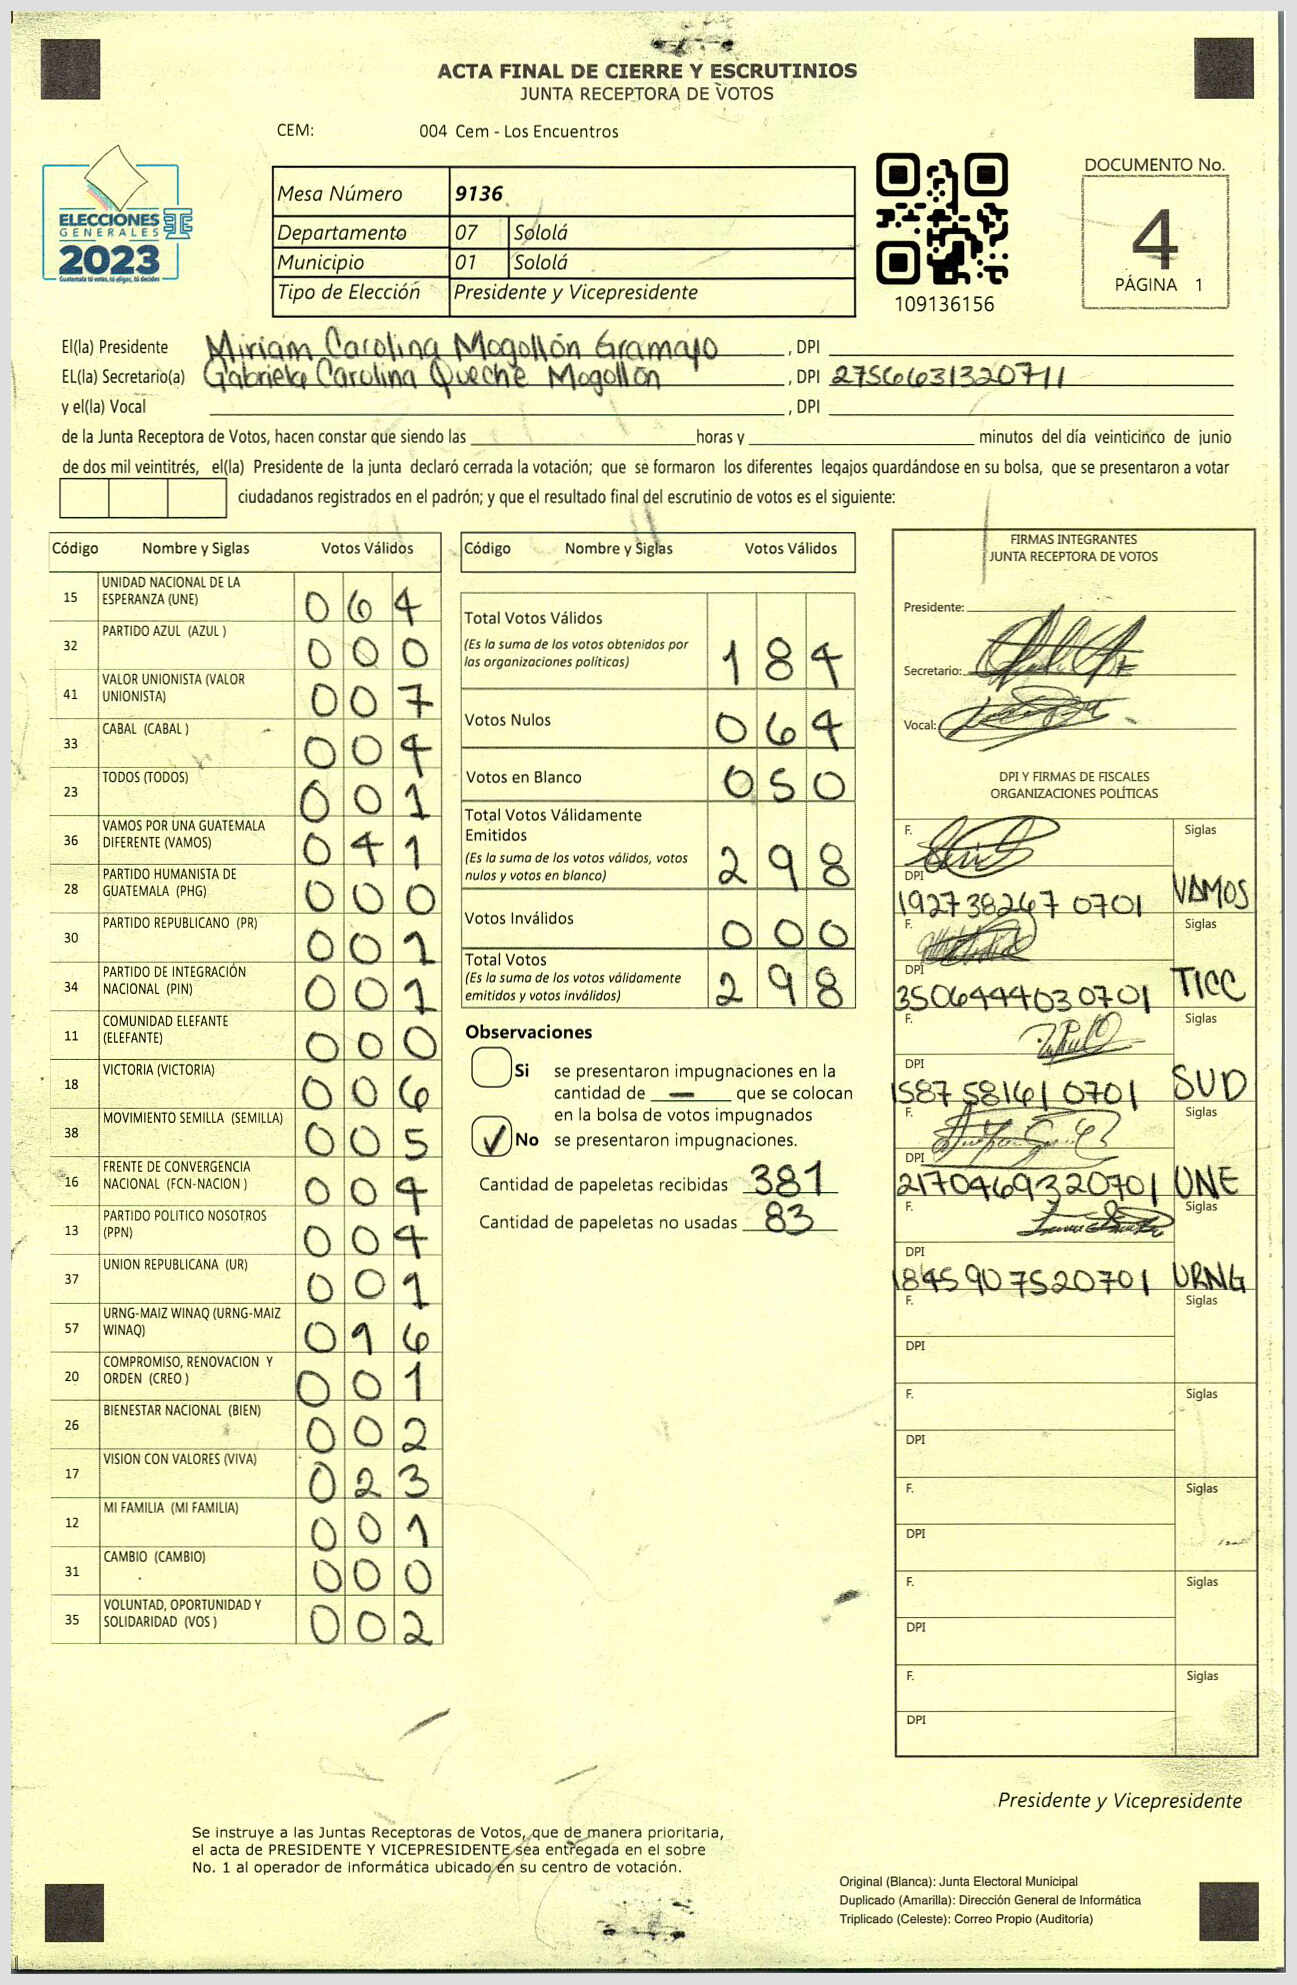 ACTA FINAL DE CIERRE Y ESCRUTINIOS
JUNTA RECEPTORA DE VOTOS
CEM: 004 Cem - Los Encuentros
ELECCIONES
GENERALES
2023
Guatemala tú votas, tú eliges, tú decides
Mesa Número 9136
Departamento 07 Sololá
Municipio 01 Sololá
Tipo de Elección Presidente y Vicepresidente
109136156
DOCUMENTO No.
4
PÁGINA 1
El(la) Presidente Miriam Carolina Mogollón Gramajo , DPI
EL(la) Secretario(a) Gabriela Carolina Queché Mogollón , DPI 2756631320711
y el(la) Vocal , DPI
de la Junta Receptora de Votos, hacen constar que siendo las horas y minutos del día veinticinco de junio
de dos mil veintitrés, el(la) Presidente de la junta declaró cerrada la votación; que se formaron los diferentes legajos guardándose en su bolsa, que se presentaron a votar
ciudadanos registrados en el padrón; y que el resultado final del escrutinio de votos es el siguiente:
Código Nombre y Siglas Votos Válidos
15 UNIDAD NACIONAL DE LA ESPERANZA (UNE) 064
32 PARTIDO AZUL (AZUL ) 000
41 VALOR UNIONISTA (VALOR UNIONISTA) 007
33 CABAL (CABAL ) 004
23 TODOS (TODOS) 001
36 VAMOS POR UNA GUATEMALA DIFERENTE (VAMOS) 041
28 PARTIDO HUMANISTA DE GUATEMALA (PHG) 000
30 PARTIDO REPUBLICANO (PR) 001
34 PARTIDO DE INTEGRACIÓN NACIONAL (PIN) 001
11 COMUNIDAD ELEFANTE (ELEFANTE) 000
18 VICTORIA (VICTORIA) 006
38 MOVIMIENTO SEMILLA (SEMILLA) 005
16 FRENTE DE CONVERGENCIA NACIONAL (FCN-NACION ) 004
13 PARTIDO POLITICO NOSOTROS (PPN) 004
37 UNION REPUBLICANA (UR) 001
57 URNG-MAIZ WINAQ (URNG-MAIZ WINAQ) 016
20 COMPROMISO, RENOVACION Y ORDEN (CREO ) 001
26 BIENESTAR NACIONAL (BIEN) 002
17 VISION CON VALORES (VIVA) 023
12 MI FAMILIA (MI FAMILIA) 001
31 CAMBIO (CAMBIO) 000
35 VOLUNTAD, OPORTUNIDAD Y SOLIDARIDAD (VOS ) 002
Código Nombre y Siglas Votos Válidos
Total Votos Válidos 184
(Es la suma de los votos obtenidos por
las organizaciones políticas)
Votos Nulos 064
Votos en Blanco 050
Total Votos Válidamente
Emitidos 298
(Es la suma de los votos válidos, votos
nulos y votos en blanco)
Votos Inválidos 000
Total Votos 298
(Es la suma de los votos válidamente
emitidos y votos inválidos)
Observaciones
Si se presentaron impugnaciones en la
cantidad de — que se colocan
en la bolsa de votos impugnados
✓ No se presentaron impugnaciones.
Cantidad de papeletas recibidas 381
Cantidad de papeletas no usadas 83
FIRMAS INTEGRANTES
JUNTA RECEPTORA DE VOTOS
Presidente:
Secretario:
Vocal:
DPI Y FIRMAS DE FISCALES
ORGANIZACIONES POLÍTICAS
F. Siglas
DPI 1927382670701 VAMOS
F. Siglas
DPI 3506444030701 TICC
F. Siglas
DPI 1587581610701 SUD
F. Siglas
DPI 2170469320701 UNE
F. Siglas
DPI 1845907520701 URNG
F. Siglas
DPI
F. Siglas
DPI
F. Siglas
DPI
F. Siglas
DPI
F. Siglas
DPI
Presidente y Vicepresidente
Se instruye a las Juntas Receptoras de Votos, que de manera prioritaria,
el acta de PRESIDENTE Y VICEPRESIDENTE sea entregada en el sobre
No. 1 al operador de informática ubicado en su centro de votación.
Original (Blanca): Junta Electoral Municipal
Duplicado (Amarilla): Dirección General de Informática
Triplicado (Celeste): Correo Propio (Auditoría)